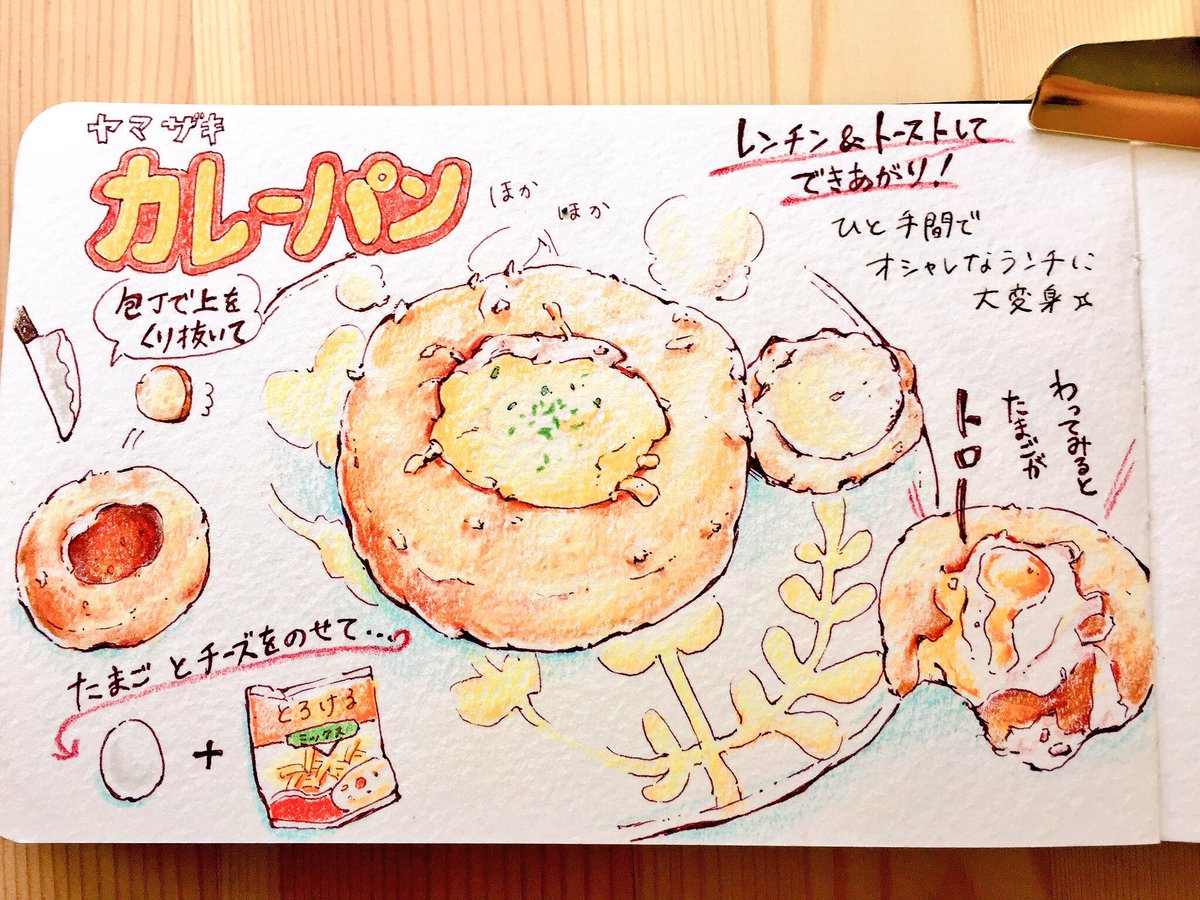 ヤマザキ
カレーパン
ほか
ほか
レンチン&トーストして
できあがり!
ひと手間で
オシャレなランチに
大変身☆
包丁で上を
くり抜いて
わってみると
たまごが
トロー
たまごとチーズをのせて...
+
とろける
ミックス